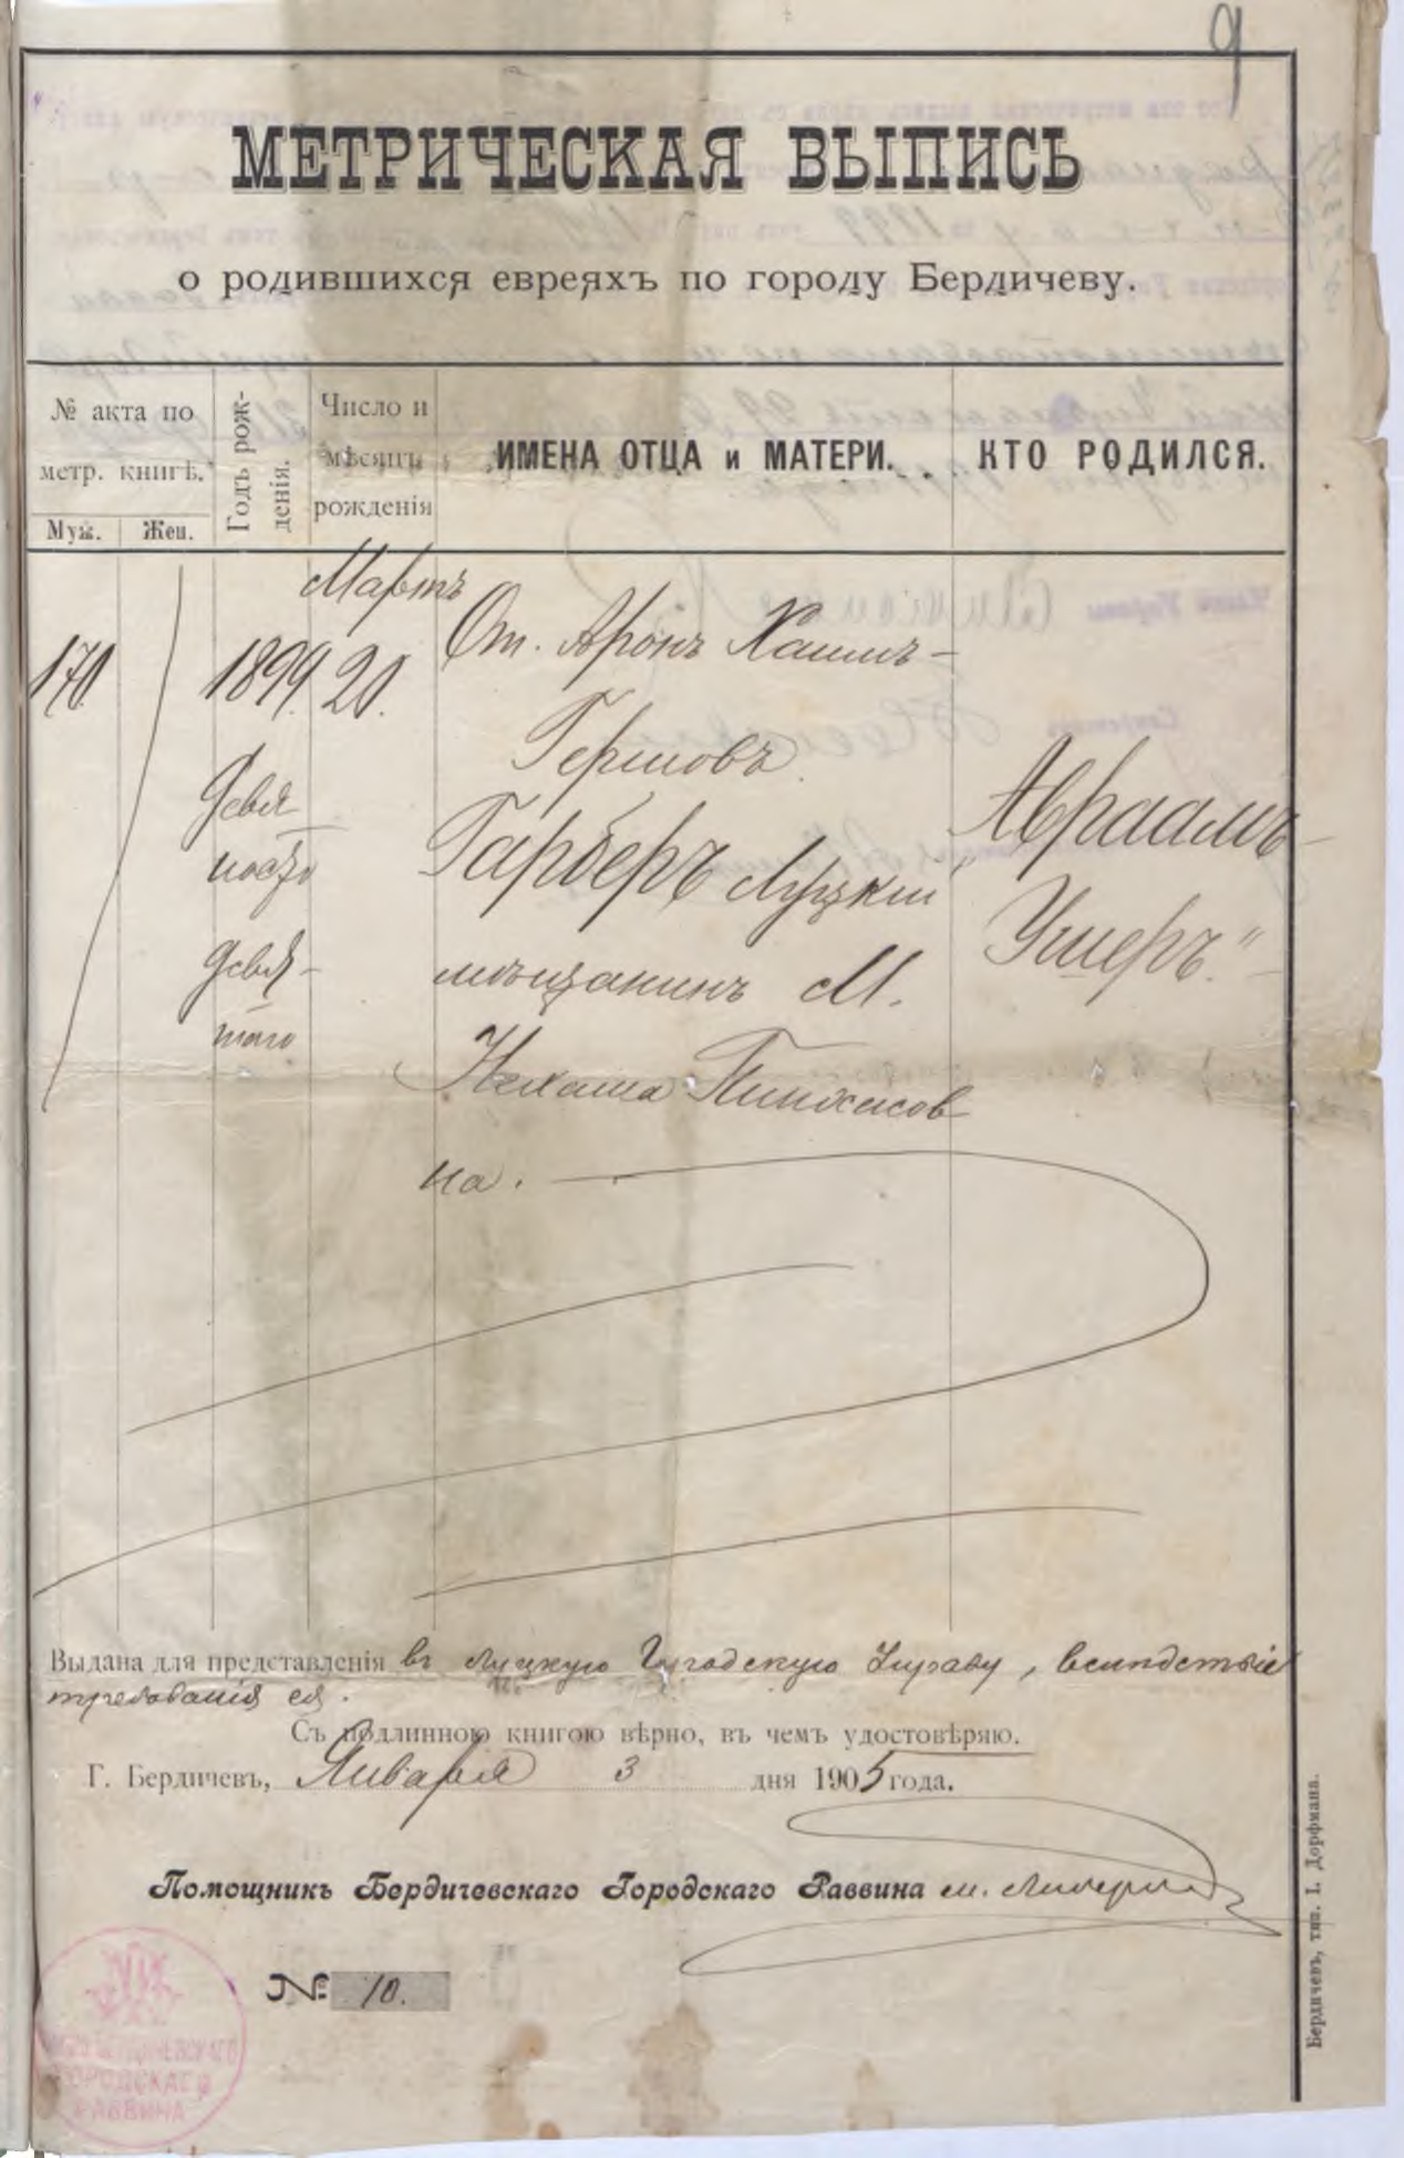 9
МЕТРИЧЕСКАЯ ВЫПИСЬ
о родившихся евреяхъ по городу Бердичеву.
№ акта по метр. книгѣ.
Муж. Жен.
Годъ рож-
денія.
Число и
мѣсяцъ
рожденія
ИМЕНА ОТЦА и МАТЕРИ.
КТО РОДИЛСЯ.
170
1899
Девя
носто
девя-
таго
Мартъ
20.
От. Аронъ Хаимъ-
Гершовъ
Гарберъ Луцкій
мѣщанинъ М.
Нехама Пинхасов
на.
„Авраамъ-
Ушеръ."
Выдана для представленія въ Луцкую Городскую Управу, вслѣдствіе
требованія ея.
Съ подлинною книгою вѣрно, въ чемъ удостовѣряю.
Г. Бердичевъ, Января 3 дня 1905 года.
Помощникъ Бердичевскаго Городскаго Раввина М.
№ 10.
ГОРОДСКАГО
РАВВИНА
Бердичевъ, тип. І. Дорфмана.